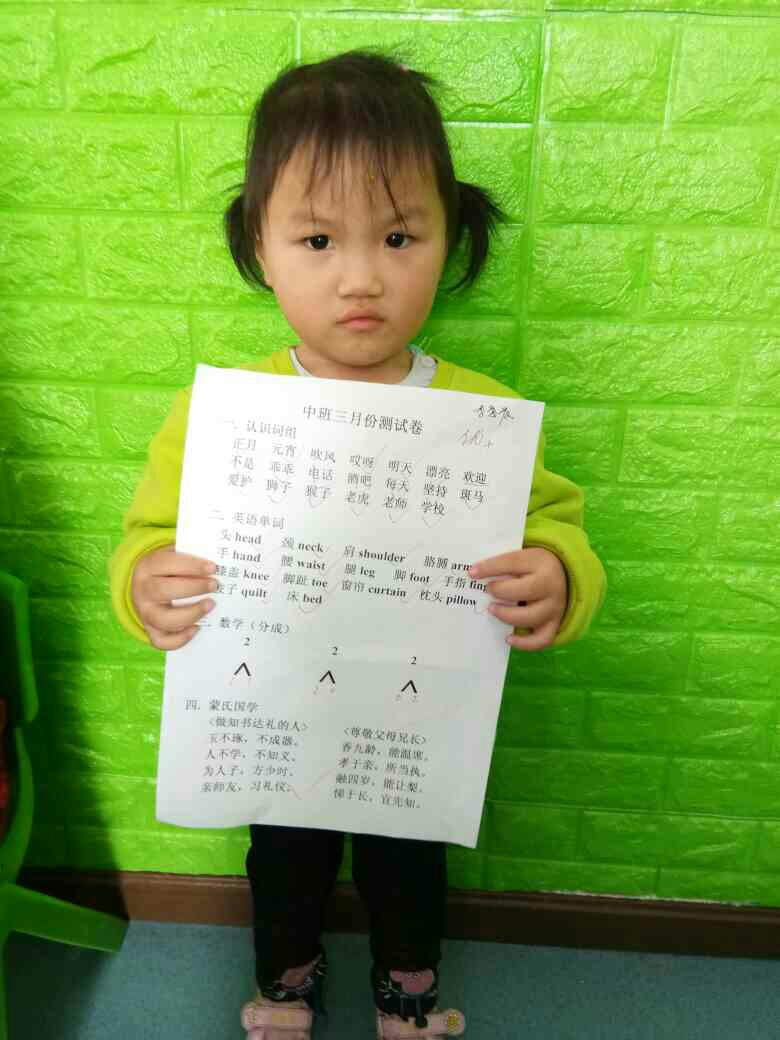 中班三月份测试卷
一、认识词组
正月 元宵 吹风 哎呀 明天 漂亮 欢迎
不是 乖乖 电话 酒吧 每天 坚持 斑马
爱护 狮子 猴子 老虎 老师 学校
二、英语单词
头 head 颈 neck 肩 shoulder 胳膊 arm
手 hand 腰 waist 腿 leg 脚 foot 手指 fing
膝盖 knee 脚趾 toe 窗帘 curtain 枕头 pillow
子 quilt 床 bed
三、数学（分成）
2 2 2
四、蒙氏国学
<做知书达礼的人>
玉不琢，不成器。
人不学，不知义。
为人子，方少时。
亲师友，习礼仪。
<尊敬父母兄长>
香九龄，能温席。
孝于亲，所当执。
融四岁，能让梨。
悌于长，宜先知。